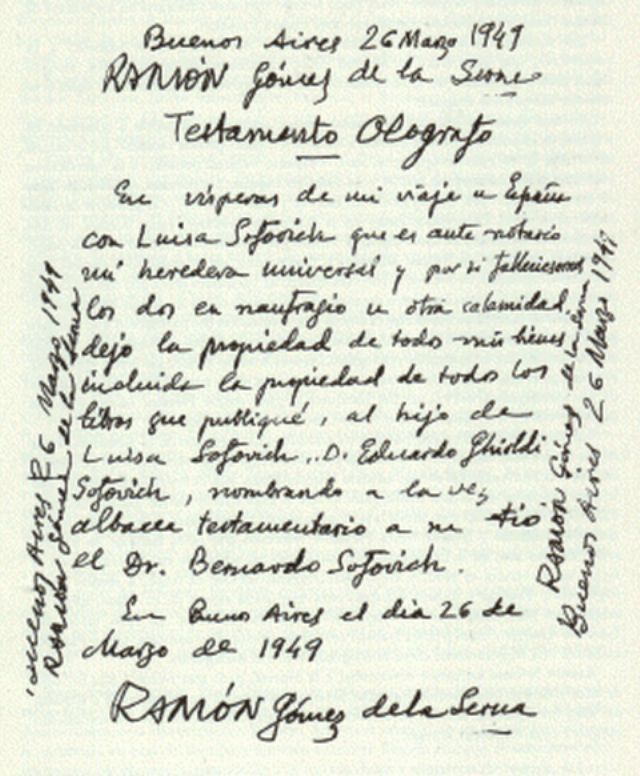 Buenos Aires 26 Marzo 1949
RAMÓN Gómez de la Serna
Testamento Olografo
En visperas de mi viaje a España
con Luisa Sofovich que es ante notario
mi heredera universal y por si falleciesemos
los dos en naufragio u otra calamidad
dejo la propiedad de todos mis bienes,
incluida la propiedad de todos los
libros que publiqué, al hijo de
Luisa Sofovich, D. Eduardo Ghioldi
Sofovich, nombrando a la vez
albacea testamentario a su tio
el Dr. Bernardo Sofovich.
En Buenos Aires el dia 26 de
Marzo de 1949
RAMÓN Gómez de la Serna
Buenos Aires 26 Marzo 1949
RAMÓN Gómez de la Serna
RAMÓN Gómez de la Serna
Buenos Aires 26 Marzo 1949